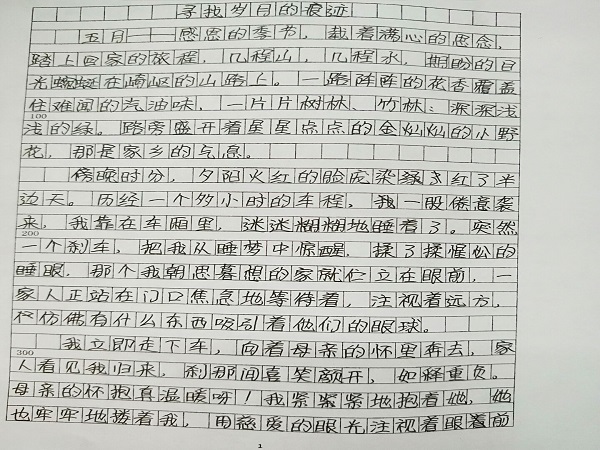 寻找岁月的痕迹
五月——感恩的季节,载着满心的思念,
踏上回家的旅程,几程山,几程水,期盼的目
光蜿蜒在崎岖的山路上。一路阵阵的花香覆盖
住难闻的汽油味,一片片树林、竹林:深深浅
100
浅的绿。路旁盛开着星星点点的金灿灿的小野
花,那是家乡的气息。
傍晚时分,夕阳火红的脸庞染红了半
边天。历经一个多小时的车程,我一股倦意袭
来,我靠在车厢里,迷迷糊糊地睡着了。突然
200
一个刹车,把我从睡梦中惊醒,揉了揉惺忪的
睡眼,那个我朝思暮想的家就伫立在眼前,一
家人正站在门口焦急地等待着,注视着远方,
仿佛有什么东西吸引着他们的眼球。
我立即走下车,向着母亲的怀里奔去,家
300
人看见我归来,刹那间喜笑颜开,如释重负。
母亲的怀抱真温暖呀!我紧紧紧地抱着她,她
也牢牢地搂着我,用慈爱的眼光注视着眼着前
1